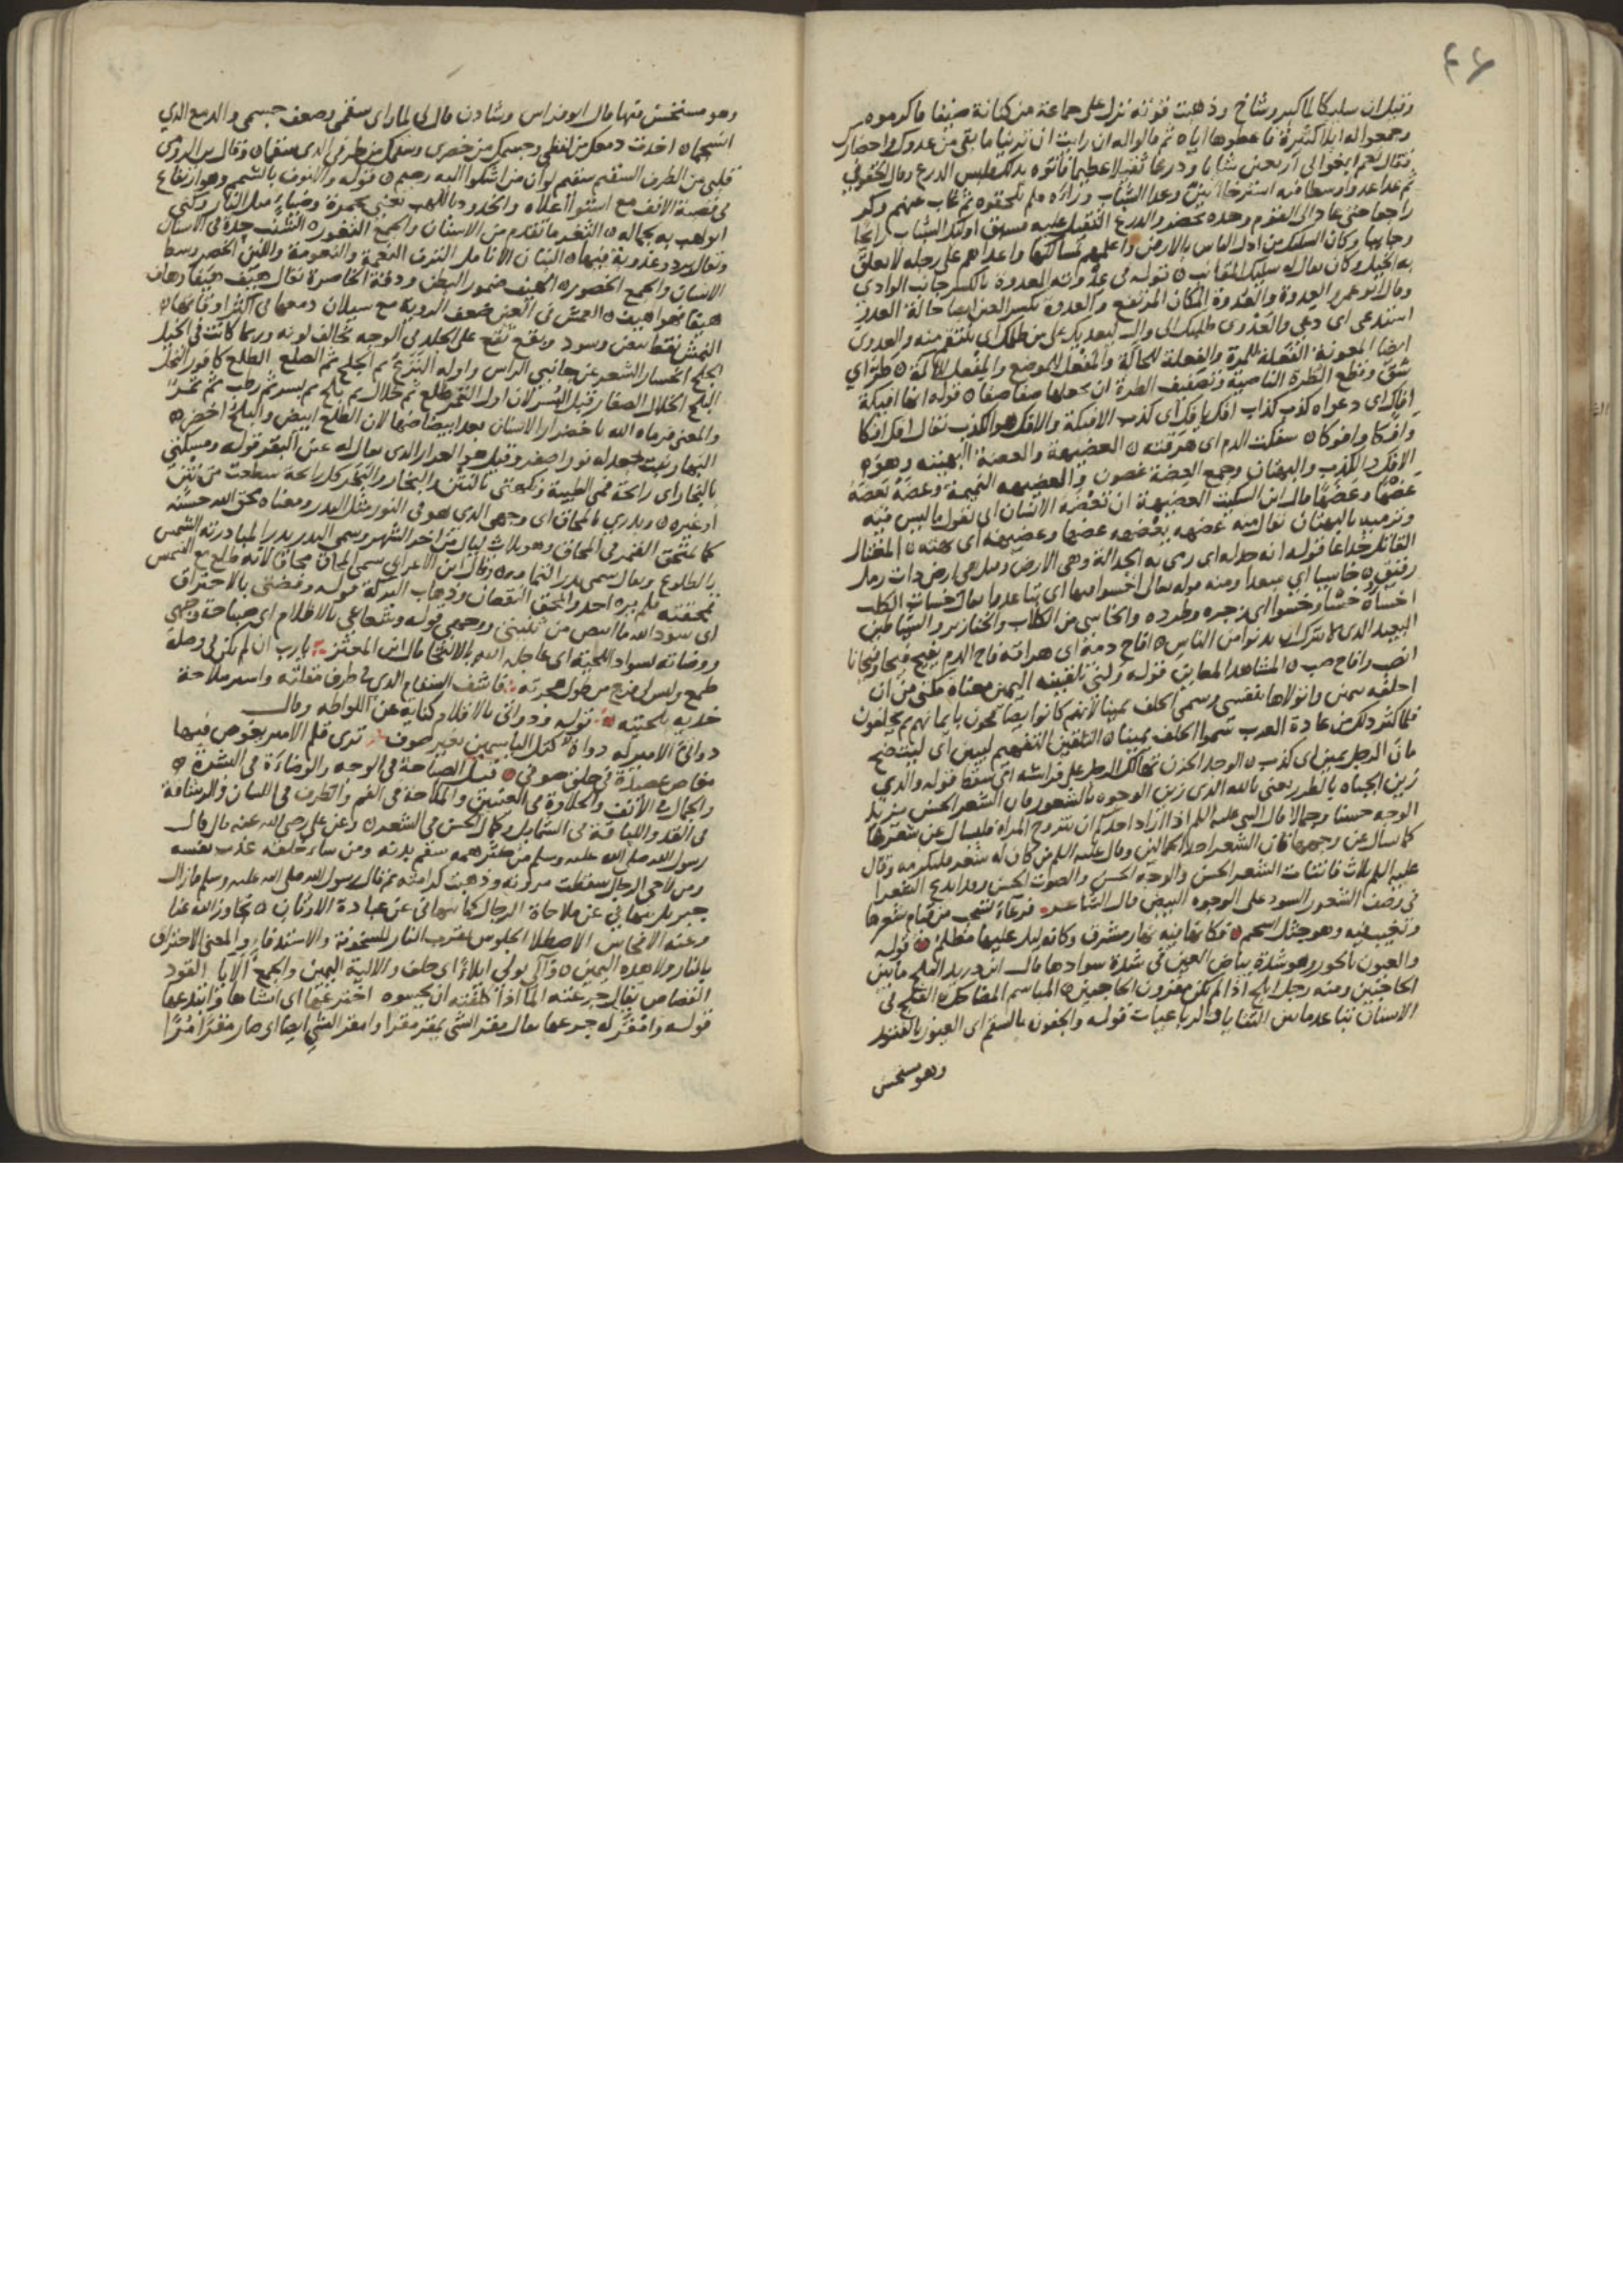 ٤٦
وقيل ان سليكا لما كبر وشاخ وذهبت قوته نزل على جماعة من كنانة ضيفا فاكرموه
وجمعوا له ابلا كثيرة فاعطوها اياه ثم قالوا له ان رايت ان ترينا ما بقى من عدوك واحضارك
فقال نعم ابغوا لي اربعين شابا ودرعا ثقيلا عظيما فاتوه بذلك فلبس الدرع وقال الحقوني
ثم عدا عدوا وسطا فيه استرخا بين وعدا الشباب وراءه فلم يلحقوه ثم غاب عنهم وكر
راجعا حتى عاد الى القوم وحده يحضر والدرع الثقيل عليه فسبق اولئك الشباب رائحا
وجائيا وكان السليك من ادل الناس بالارض واعلمهم بمسالكها واعداهم على رجله لا تعلق
به الخيل وكان يقال له سليك المقانب ٥ قوله في عدوته العدوة بالكسر جانب الوادي
وقال ابو عمرو العدوة والعدوة المكان المرتفع والعدوة بكسر العين ايضا حالة العدو
استدعى اى دعي والعدوى طلبك الى وال ليعديك على من ظلمك اى ينتقم منه والعدوى
ايضا المعونة الفعلة للمرة والفعلة للحالة والمفعل للموضع والمفعل للالة ٥ طر اي
شق وقطع الطرة الناصية وتصفيف الطرة ان يجعلها صفا صفا ٥ قوله انها افيكة
افاك اى دعواه كذب كذاب افك يافك اى كذب الافيكة والافك هو الكذب يقال افك افكا
وافكا وافوكا ٥ سفكت الدم اى هرقته ٥ العضيهة والعضة البهيتة وهو
الافك والكذب والبهتان وجمع العضة عضون والعضيهه النميمة وعضه يعضه
عضها وعضها قال ابن السكيت العضيهة ان تعضه الانسان اى تقول ما ليس فيه
وترميه بالبهتان تقول منه عضهه يعضهه عضها وعضيهة اى بهته ٥ المغتال
القاتل خداعا قوله انه جدله اى رمى به الجدالة وهى الارض وقيل هى ارض ذات رمل
رقيق ٥ خاسيا اي مبعدا ومنه قوله تعالى اخسوا فيها اى تباعدوا يقال خسات الكلب
اخساه خسا وخسوا اى زجره وطرده والخاسى من الكلاب والخنازير والشياطين
البعيد الذى لا يترك ان يدنوا من الناس ٥ افاح دمه اى هراقه فاح الدم يفيح فيحا وفيحانا
انصب وافاح صب ٥ المشاهد المعاين قوله ولني تلقينه اليمين معناه مكنى من ان
احلفه يمينى واتولاها بنفسى وسمى الحلف يمينا لانهم كانوا يصافحون بايمانهم ثم يحلفون
فلما كثر ذلك من عادة العرب سموا الحلف يمينا ٥ التلقين التفهيم ليبين اى ليتضح
مان الرجل يمين اى كذب ٥ الوجد الحزن تهالك الرجل على فراشه اى سقط قوله والذي
زين الجباه بالطرر يعنى بالله الذى زين الوجوه بالشعور فان الشعر الحسن يزيد
الوجه حسنا وجمالا قال النبي عليه السلم اذا اراد احدكم ان يتزوج المراة فليسال عن شعرها
كما يسال عن وجهها فان الشعر احد الجمالين وقال عليه السلم من كان له شعر فليكرمه وقال
عليه السلم ثلاث فاتنات الشعر الحسن والوجه الحسن والصوت الحسن وما ابدع الشعرا
في وصف الشعور السود على الوجوه البيض قال الشاعر فرعاء تسحب من قيام شعرها
وتغيب فيه وهو جثل اسحم فكانها فيه نهار مشرق وكانه ليل عليها مظلم قوله
والعيون بالحور وهو شدة بياض العين في شدة سوادها قال ابن دريد البلج ما بين
الحاجبين ومنه رجل ابلج اذا لم يكن مقرون الحاجبين ٥ المباسم المضاحك الفلج في
الاسنان تباعد ما بين الثنايا والرباعيات قوله والجفون بالسقم اى العيون بالفتور
وهو مستحسن
وهو مستحسن منها قال ابو فراس وشادن قال لي لما راى سقمي وضعف جسمي والدمع الذي
انسجما ٥ اخذت دمعك من لفظي وجسمك من خصرى وسقمك من طرفي الذى سقما ٥ وقال ابن الرومي
قلبى من الطرف السقيم سقيم لو ان من اشكوا اليه رحيم ٥ قوله والانوف بالشمم وهو ارتفاع
في قصبة الانف مع استوا اعلاه والخدود باللهب يعني بحمرة وضياء مثل النار وكني
ابو لهب به لجماله ٥ الثغر ما تقدم من الاسنان والجمع الثغور ٥ الشنب حدة في الاسنان
ويقال برد وعذوبة فيها ٥ البنان الانامل الترف النعمة والنعومة واللين الخصر وسط
الانسان والجمع الخصور ٥ الهيف ضمور البطن ودقة الخاصرة يقال هيف هيفا وهاف
هيفا فهو اهيف ٥ العمش في العين ضعف الروية مع سيلان دمعها في اكثر اوقاتها ٥
النمش نقط بيض وسود وبقع تقع على الجلد في الوجه تخالف لونه وربما كانت في الخيل
الجلح انحسار الشعر عن جانبي الراس واوله النزع ثم الجلح ثم الصلع الطلع كافور النخل
البلح الخلال الصغار قبل البسر لان اول التمر طلع ثم خلال ثم بلح ثم بسر ثم رطب ثم تمر
والمعنى فرماه الله باخضرار الاسنان بعد ابيضاضها لان الطلع ابيض والبلح اخضر ٥
البهار نبت جعد له نور اصفر وقيل هو العرار الذى يقال له عين البقر قوله ومسكتي
بالبخار اى رائحة فمي الطيبة ونكهتى بالنتن والبخار والبخر كل رائحة سطعت من نتن
او غيره ٥ وبدري بالمحاق اى وجهى الذى هو في النور مثل البدر ومعناه محق الله حسنه
كما يمحق القمر في المحاق وهو ثلاث ليال من اخر الشهر وسمى البدر بدرا لمبادرته الشمس
بالطلوع ويقال سمى بدرا لتمامه ٥ وقال ابن الاعرابي سمى المحاق محاقا لانه طلع مع الشمس
فمحقته فلم يره احد والمحق النقصان وذهاب البركة قوله وفضتي بالاحتراق
اى سود الله ما ابيض من بدني ووجهي قوله وشعاعي بالاظلام اى صباحة وجهي
ووضاته بسواد اللحية اى عاجله الله بالالتحا قال ابن المعتز يا رب ان لم يكن في وصله
طمع وليس لي فرج من طول هجرته فاشف السقام الذى في طرف مقلته واستر ملاحة
خديه بلحيته قوله ودواتي بالاقلام كناية عن اللواطه وقال
دواة الامير له دواة كمثل الياسمين بغير صوف ترى قلم الامير يغوص فيها
قيل الصباحة في الوجه والوضاءة في البشرة ٥
والجمال في الانف والحلاوة في العينين والملاحة في الفم والظرف في اللسان والرشاقة
في القد واللباقة في الشمايل وكمال الحسن في الشعر ٥ وعن على رضى الله عنه قال قال
رسول الله صلى الله عليه وسلم من كثر همه سقم بدنه ومن ساء خلقه عذب نفسه
ومن لاحى الرجال سقطت مروته وذهبت كرامته ثم قال رسول الله صلى الله عليه وسلم ما زال
جبريل ينهاني عن ملاحاة الرجال كما ينهاني عن عبادة الاوثان ٥ تجاوز الله عنا
وعنه الاصطلا الجلوس بقرب النار للسخونة والاستدفاء والمعنى الاحتراق
بالنار ولا هذه اليمين ٥ والى يولى ايلاء اى حلف والالية اليمين والجمع الالايا القود
القصاص اخترعها اى انشاها وابتدعها
قوله وامقر له جرعها يقال مقر الشى يمقر مقرا وامقر الشى ايضا اى صار مقرا مرا